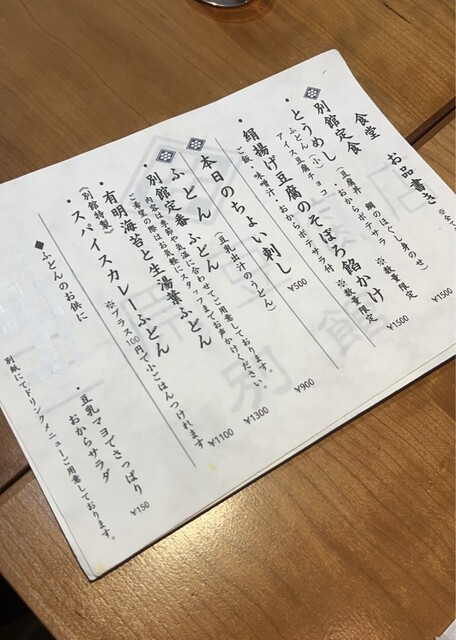 食堂 お品書き
別館定食
・とうめし(小)
(豆腐丼 鯛のほぐし身のせ)
ふどん・おからポテサラ ※数量限定
¥1500
アイス豆腐チョコ
・絹揚げ豆腐のそぼろ餡かけ ※数量限定
ご飯・味噌汁・おからポテサラ付
¥1500
本日のちょい刺し
¥500
ふどん (豆乳出汁のうどん)
・別館定番 ふどん
¥900
内容は季節や気温に合わせてご用意しております。
ご希望の際はお気軽にスタッフまでお声かけください。
・有明海苔と生湯葉ふどん
¥1300
・(別館特製)スパイスカレーふどん
¥1100
※プラス100円で小ごはんつけれます
◆ふどんのお供に
・豆乳マヨでさっぱり
おからサラダ
¥150
別紙にてドリンクメニューご用意しております。
別館